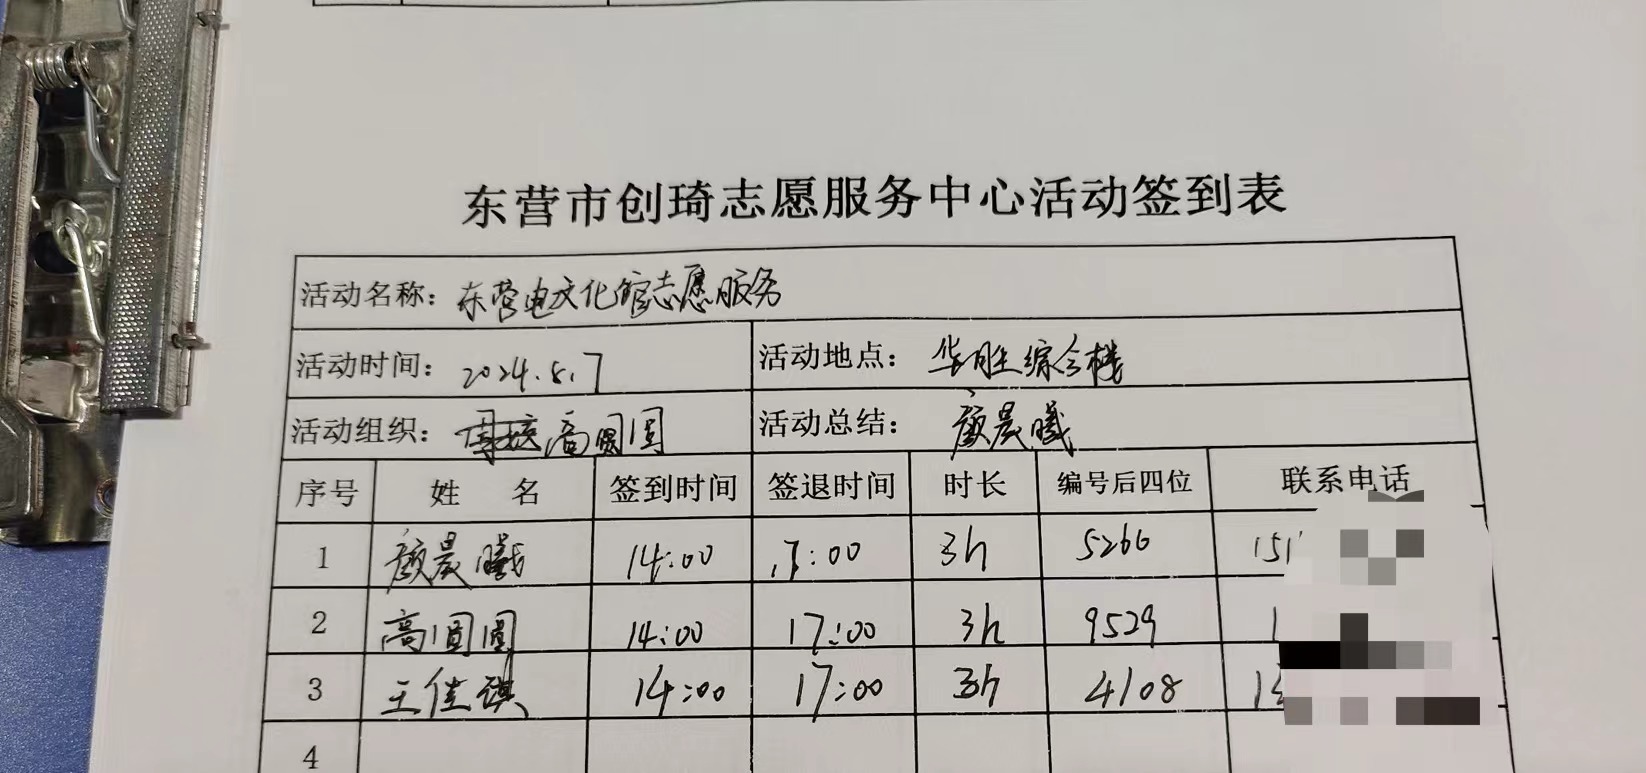 东营市创琦志愿服务中心活动签到表
活动名称：东营电文化馆志愿服务
活动时间：2024.5.7 活动地点：华胜综合楼
活动组织：高圆圆 活动总结：颜晨曦
序号 姓名 签到时间 签退时间 时长 编号后四位 联系电话
1 颜晨曦 14:00 17:00 3h 5266 151
2 高圆圆 14:00 17:00 3h 9529 1
3 王佳琪 14:00 17:00 3h 4108 1
4